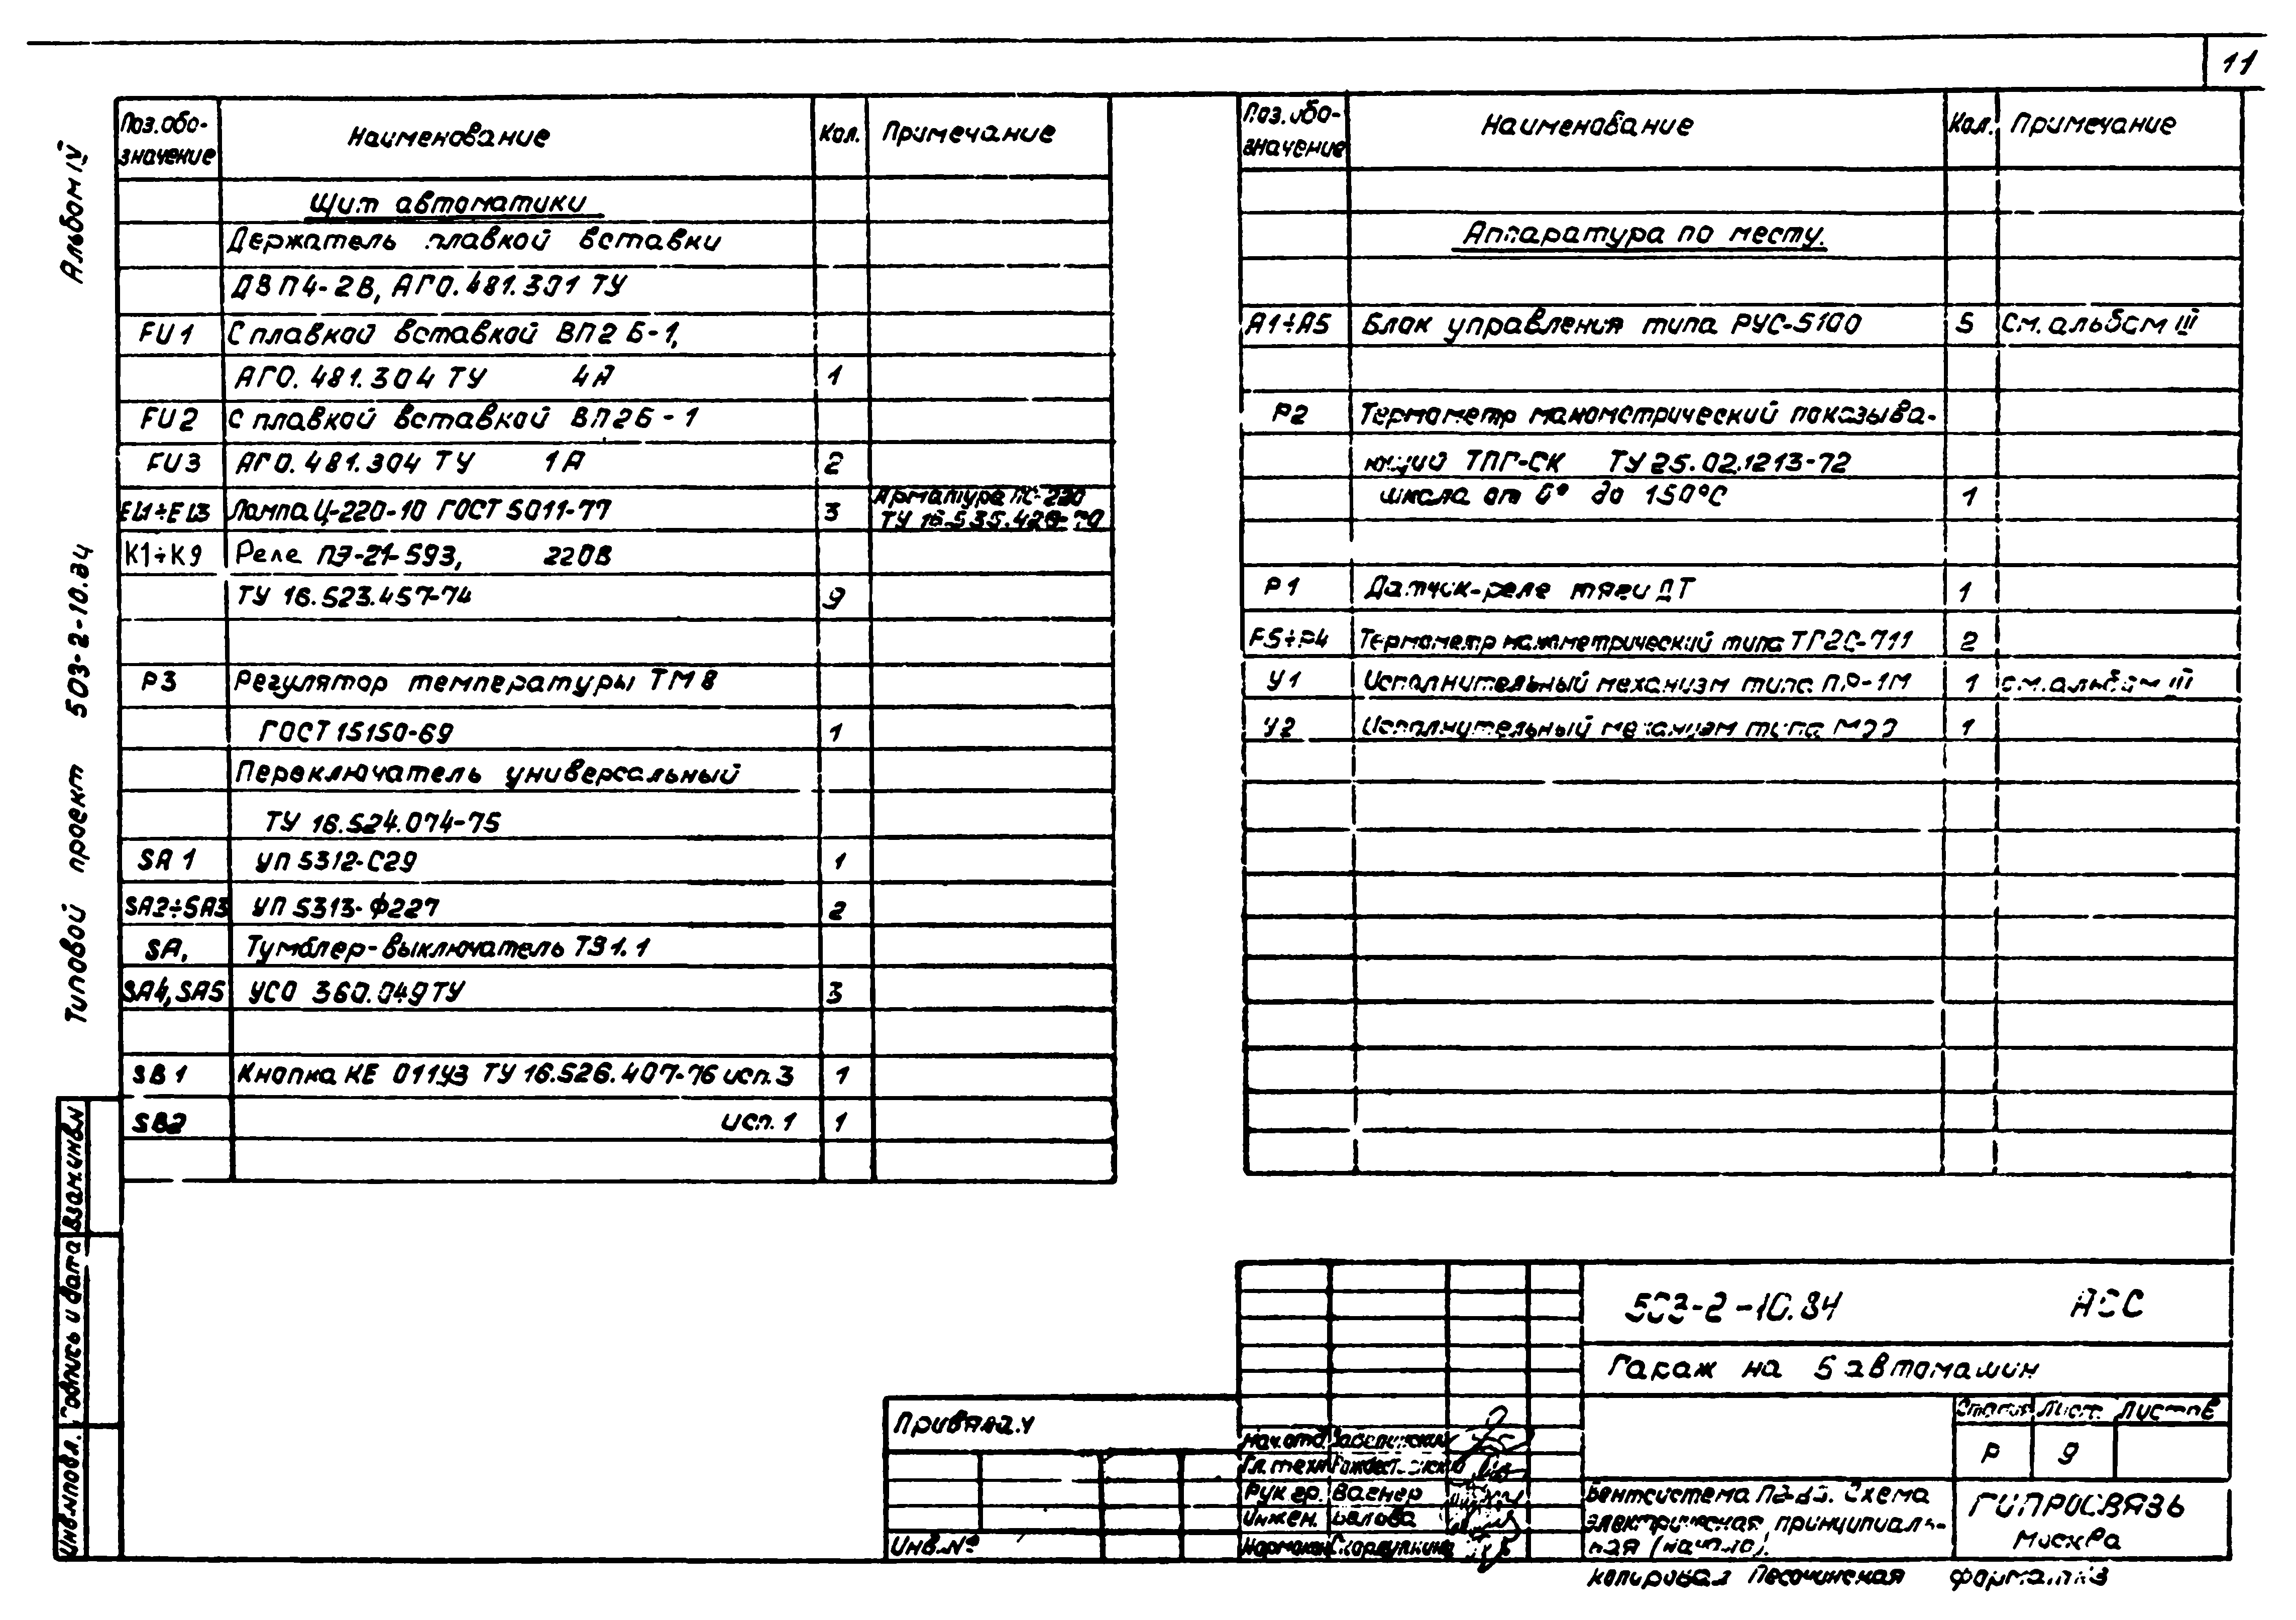 11
Альбом IV
Типовой проект 503-2-10.84
Поз. обо-
значение
Наименование
Кол.
Примечание
Щит автоматики
Держатель плавкой вставки
ДВП4-2В, АГО.481.301 ТУ
FU1 С плавкой вставкой ВП2Б-1,
АГО.481.304 ТУ 4А 1
FU2 С плавкой вставкой ВП2Б-1
FU3 АГО.481.304 ТУ 1А 2
EL1÷EL3 Лампа Ц-220-10 ГОСТ 5011-77 3 Арматура ПС-220
ТУ 16.535.426-70
К1÷К9 Реле ПЭ-21-593, 220В
ТУ 16.523.457-74 9
Р3 Регулятор температуры ТМ8
ГОСТ 15150-69 1
Переключатель универсальный
ТУ 16.524.074-75
SA1 УП 5312-С29 1
SA2÷SA3 УП 5313-Ф227 2
SA, Тумблер-выключатель ТВ1.1
SA4, SA5 УСО 360.049 ТУ 3
SB1 Кнопка КЕ 011У3 ТУ 16.526.407-76 исп.3 1
SB2 исп.1 1
Поз. обо-
значение
Наименование
Кол.
Примечание
Аппаратура по месту.
А1÷А5 Блок управления типа РУС-5100 5 См. альбом III
Р2 Термометр манометрический показыва-
ющий ТПГ-СК ТУ 25.02.1213-72
шкала от 0° до 150°С 1
Р1 Датчик-реле тяги ДТ 1
Термометр манометрический типа ТГ2С-711 2
У1 Исполнительный механизм типа ПР-1М 1 см. альбом III
У2 Исполнительный механизм типа 1
Взам инв №
Подпись и дата
Инв. № подл.
Привязал
Инв. №
Нач. отд.
Гл. техн.
Рук гр. Вагнер
Инжен. Белова
Нормокон
503-2-10.84
Гараж на 5 автомашин
Стадия Лист Листов
Р 9
Вентсистема Схема
электрическая принципиаль-
ная (начало).
ГИПРОСВЯЗЬ
Москва
Копировал Песочинская
формат